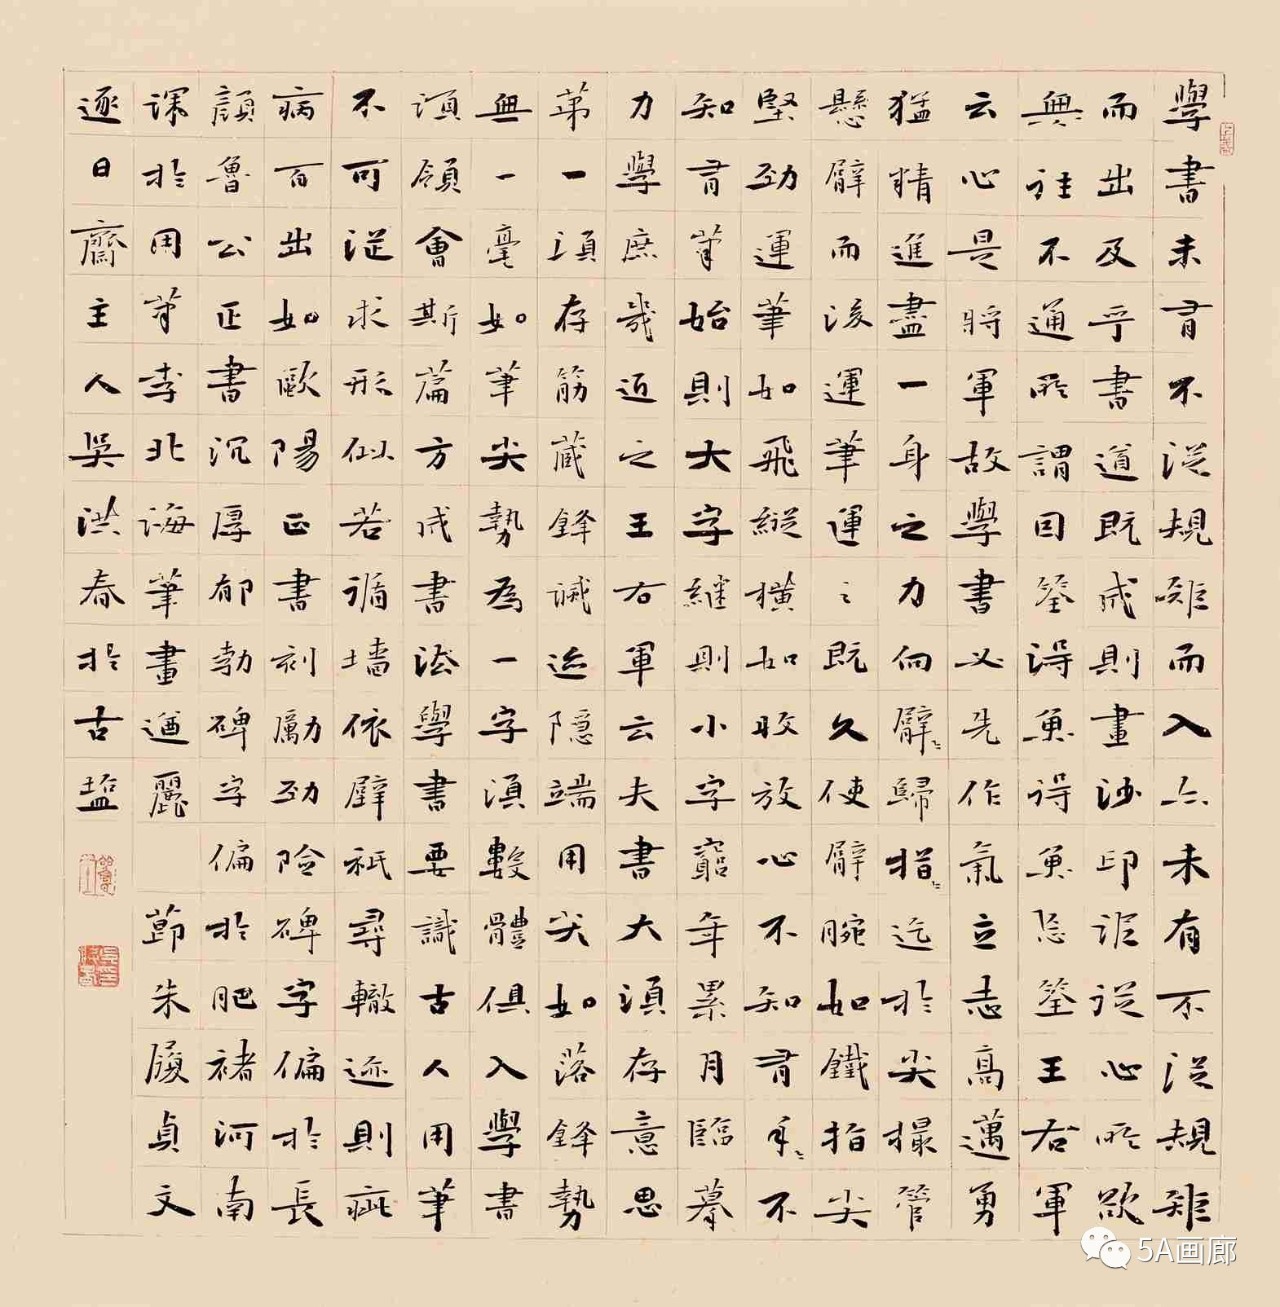 學書未有不從規矩而入亦未有不從規矩
而出及乎書道既成則畫沙印泥從心所欲
無往不通所謂因筌得魚得魚忘筌王右軍
云心是將軍故學書必先作氣立志高邁勇
猛精進盡一身之力向臂〻歸指〻迄於尖撮管
懸臂而後運筆運〻既久使臂腕如鐵指尖
堅勁運筆如飛縱橫如收放心不知有手〻不
知有筆始則大字繼則小字窮年累月臨摹
力學庶幾近之王右軍云夫書大須存意思
第一須存筋藏鋒滅迹隱端用尖如落鋒勢
無一毫如筆尖勢為一字須數體俱入學書
須領會斯篇方成書法學書要識古人用筆
不可從求形似若循墻依壁祇尋轍迹則疵
病百出如歐陽正書刻勵勁險碑字偏於長
顏魯公正書沉厚郁勃碑字偏於肥褚河南
深於用筆李北海筆畫遒麗 節朱履貞文
逐日齋主人吳洪春於古鹽
5A画廊